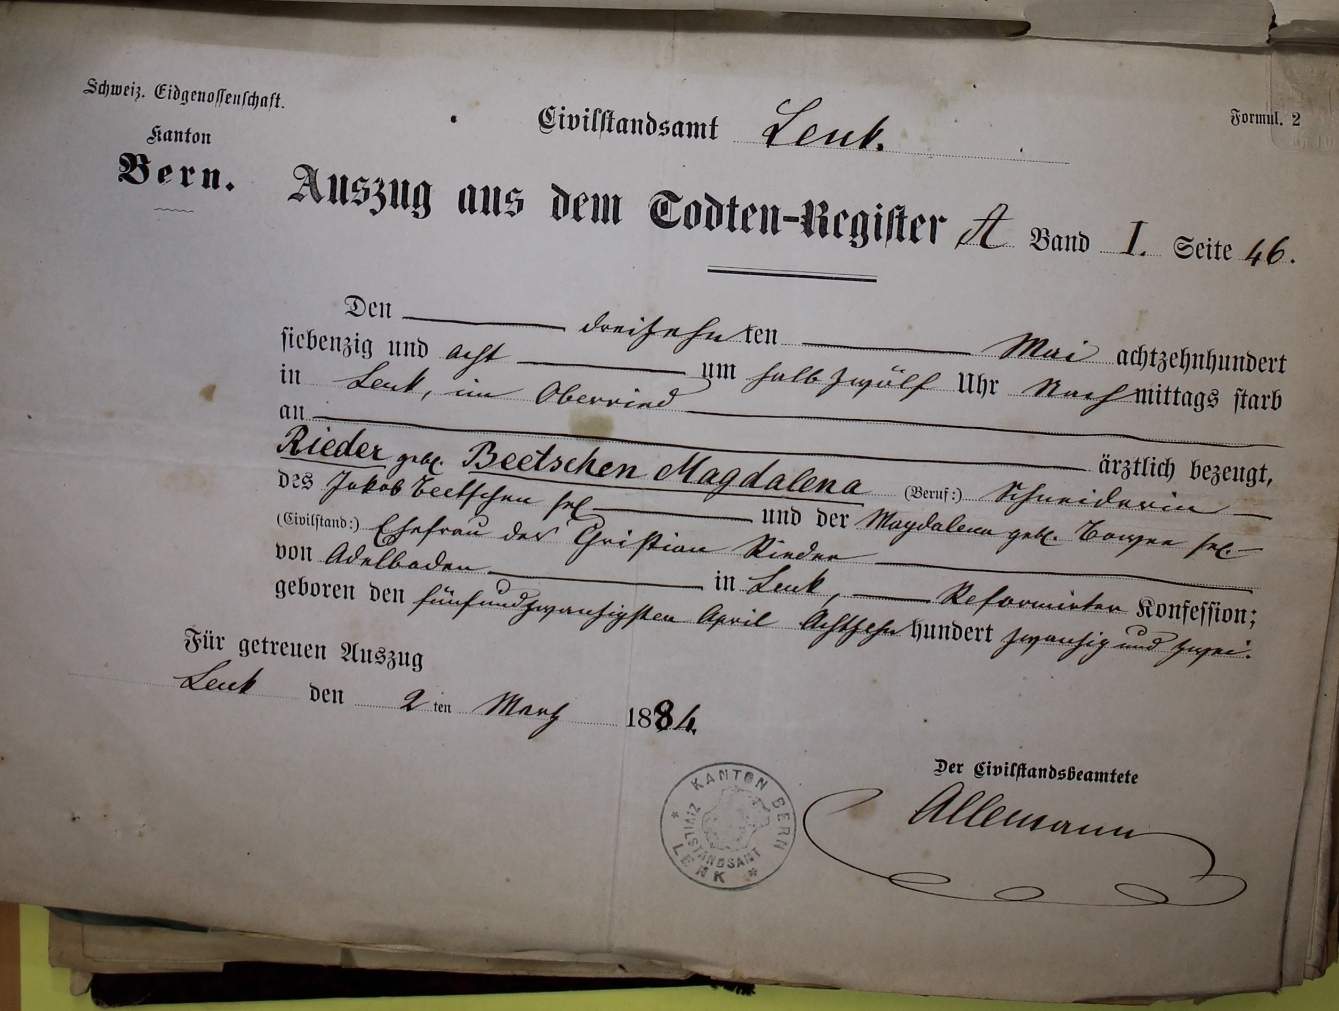 Schweiz. Eidgenossenschaft.
Kanton
Bern.
Civilstandsamt Lenk.
Formul. 2
Auszug aus dem Todten-Register A Band I. Seite 46.
Den dreizehnten Mai achtzehnhundert
siebenzig und acht um halb zwölf Uhr Nachmittags starb
in Lenk, im Oberried
an ärztlich bezeugt,
Rieder geb. Beetschen Magdalena (Beruf:) Schneiderin
des Jakob Beetschen sel. und der Magdalena geb. sel.
(Civilstand:) Ehefrau des Christian Rieder
von Adelboden in Lenk, Reformirter Konfession;
geboren den fünfundzwanzigsten April Achtzehnhundert zwanzig und zwei.
Für getreuen Auszug
Lenk den 2ten März 1884.
Der Civilstandsbeamtete
Allemann
KANTON BERN
ZIVILSTANDSAMT
* LENK *